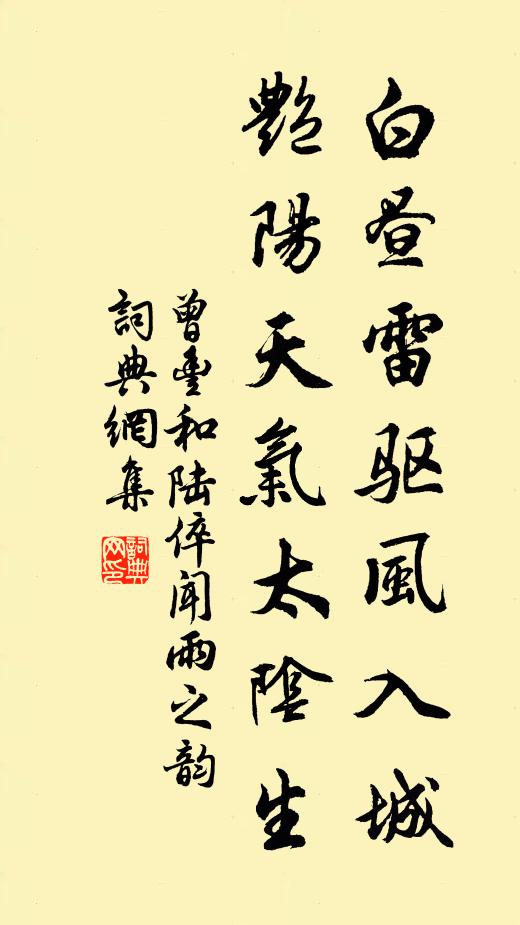 白昼雷驱風入城
艷陽天氣太陰生
曾豐和陆倅闻雨之韵
詞典網集
詞典网印